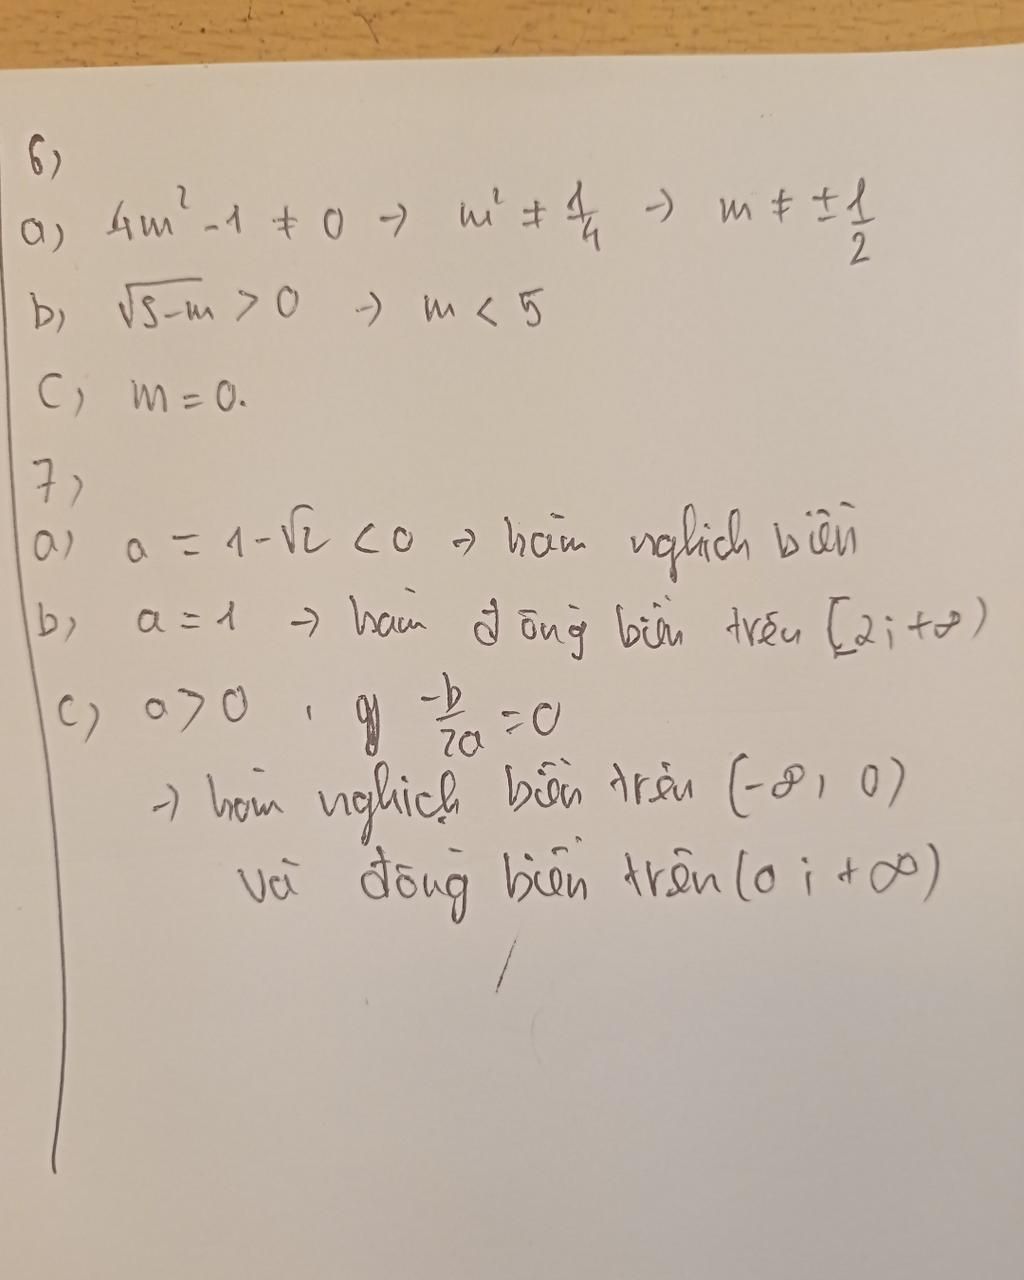 6)
a) 4m² - 1 ≠ 0 → m² ≠ 1/4 → m ≠ ± 1/2
b) √5-m > 0 → m < 5
c) m = 0.
7)
a) a = 1 - √2 < 0 → hàm nghịch biến
b) a = 1 → hàm đồng biến trên [2; +∞)
c) a > 0, -b/2a = 0
→ hàm nghịch biến trên (-∞, 0)
và đồng biến trên (0; +∞)